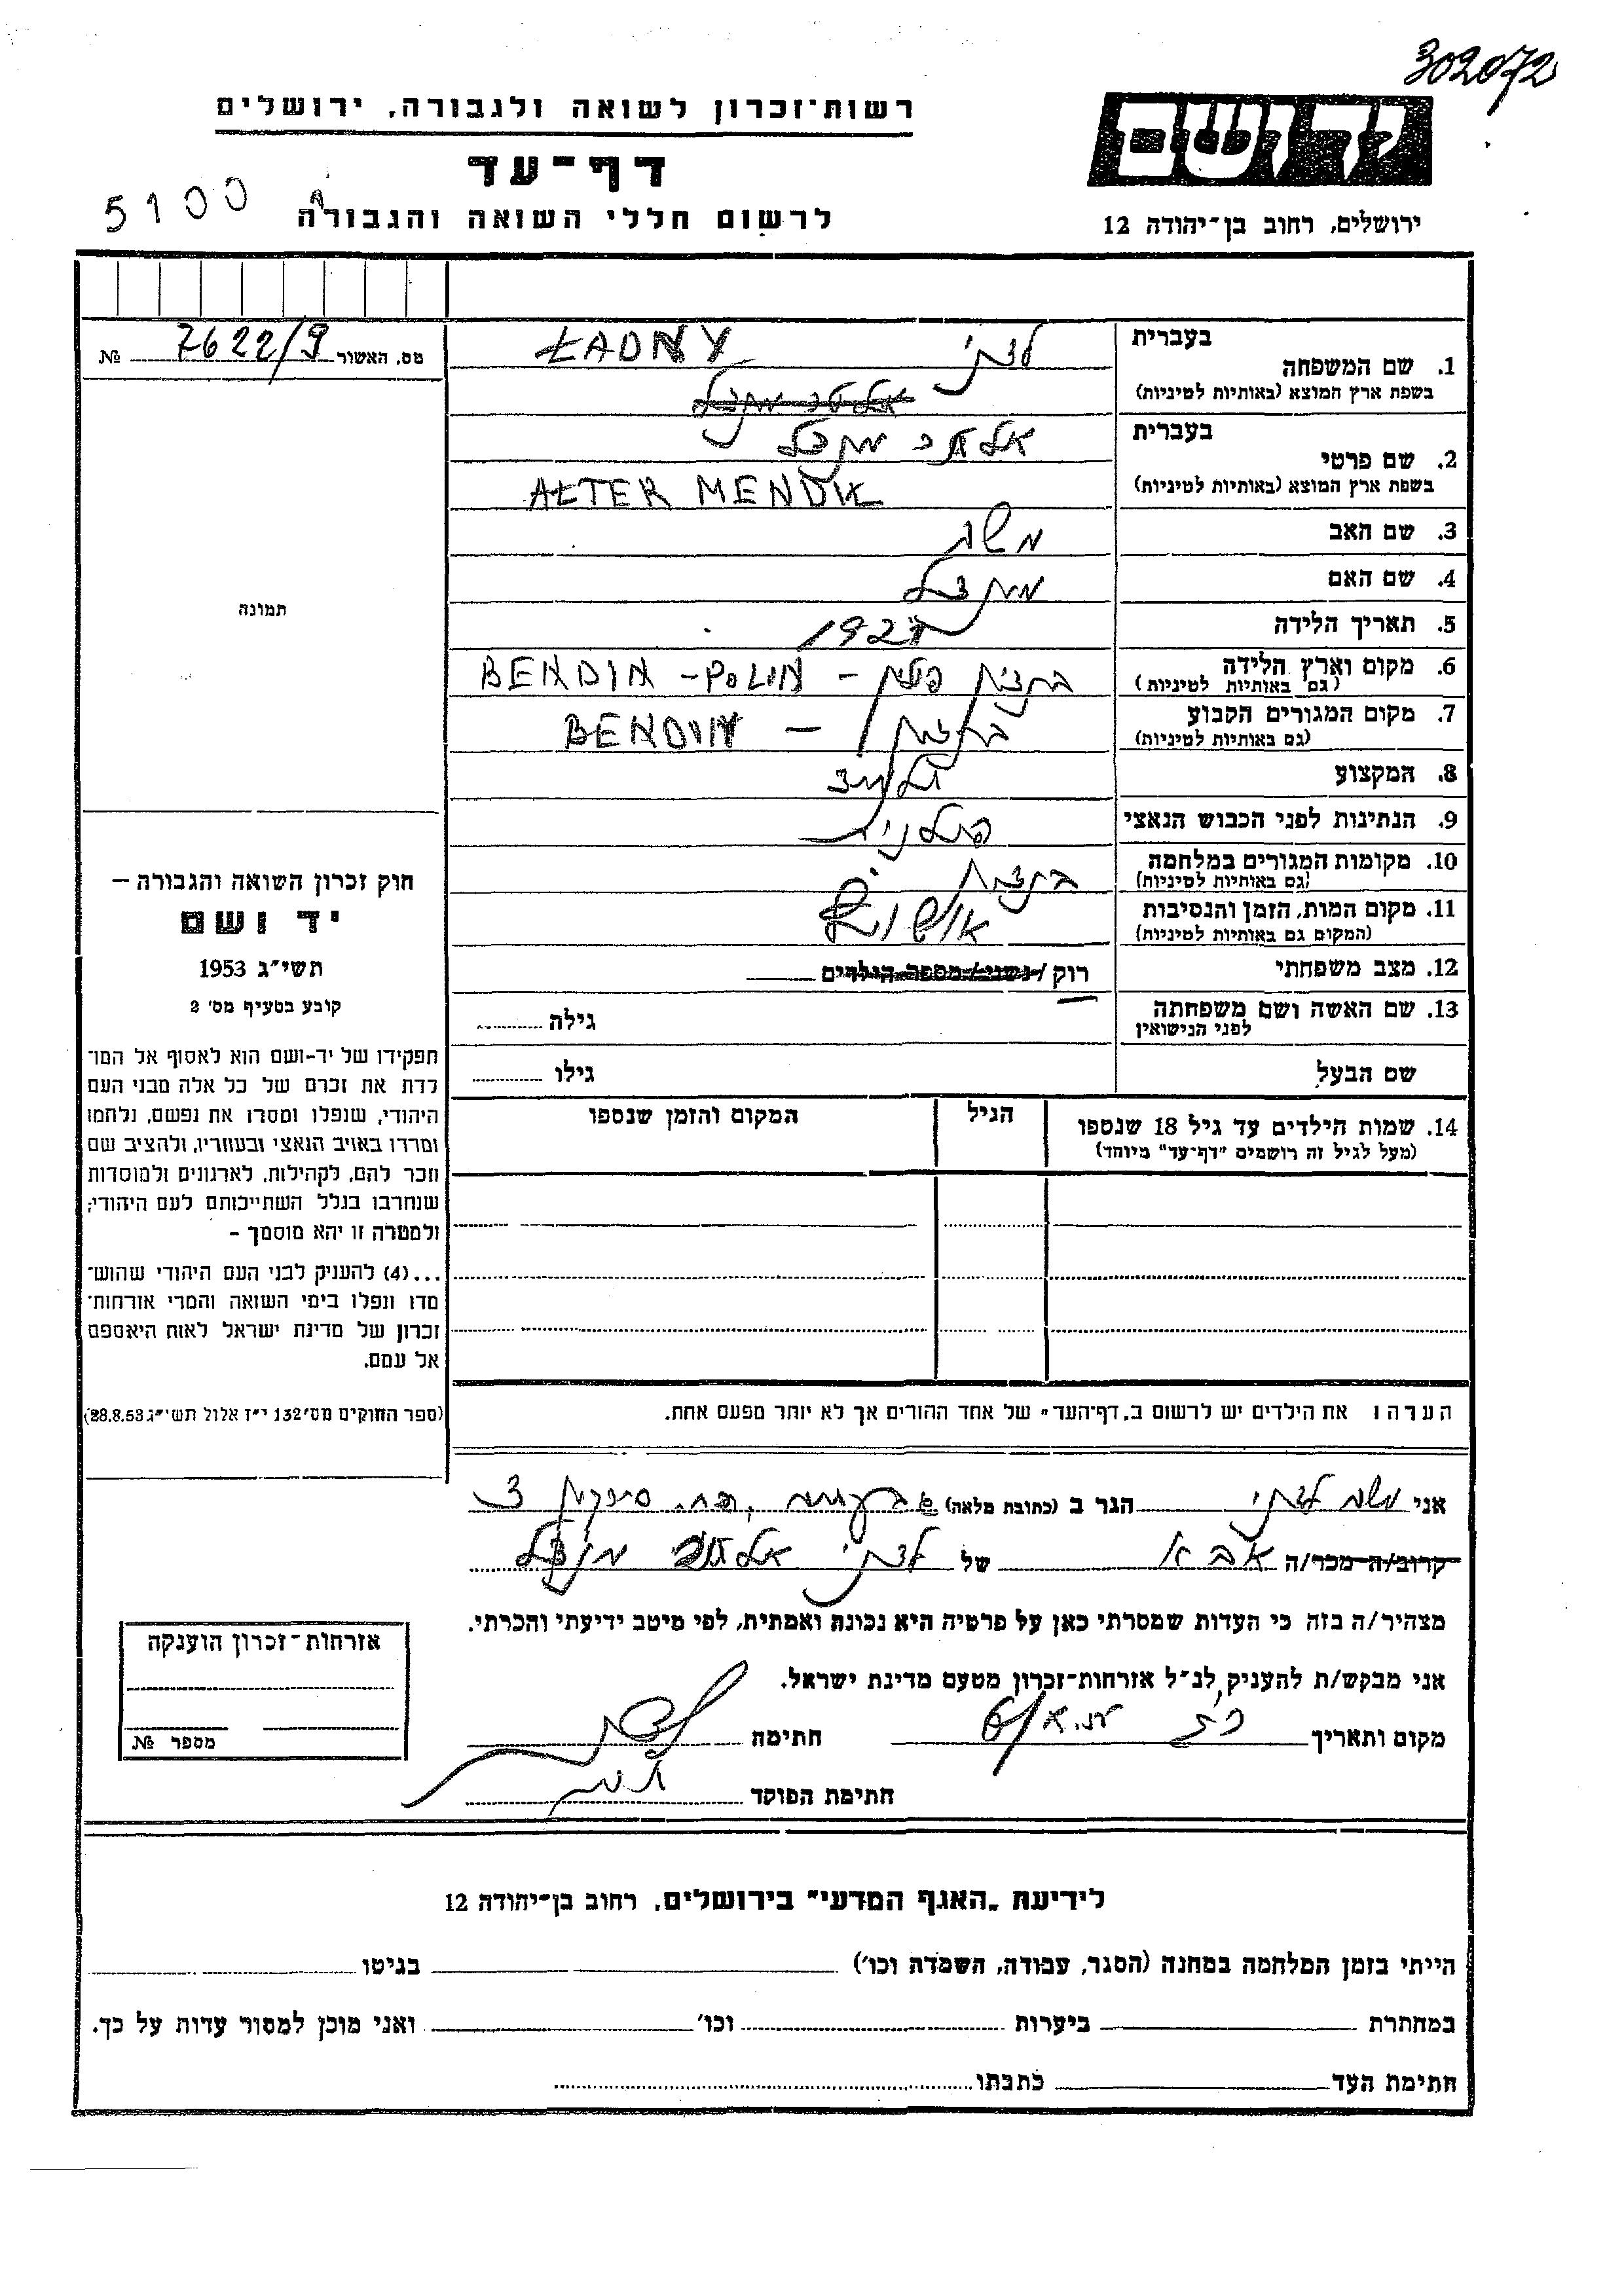 302072
רשות־זכרון לשואה ולגבורה, ירושלים
דף־עד
לרשום חללי השואה והגבורה
5100
ידושם
ירושלים, רחוב בן־יהודה 12
מס. האשור 7622/9 №
בעברית
1. שם המשפחה לדני ŁADNY
בשפת ארץ המוצא (באותיות לטיניות)
בעברית
2. שם פרטי אלתר מנדל
בשפת ארץ המוצא (באותיות לטיניות) ALTER MENDIL
3. שם האב משה
4. שם האם
5. תאריך הלידה 1927
6. מקום וארץ הלידה בנדין פולין – BENDIN – POLIN
(גם באותיות לטיניות)
7. מקום המגורים הקבוע בנדין – BENDIN
(גם באותיות לטיניות)
8. המקצוע תלמיד
9. הנתינות לפני הכבוש הנאצי פולנית
10. מקומות המגורים במלחמה בנדין
(גם באותיות לטיניות)
11. מקום המות, הזמן והנסיבות אושויץ
(המקום גם באותיות לטיניות)
12. מצב משפחתי רוק/נשוי/מספר הילדים
13. שם האשה ושם משפחתה גילה
לפני הנישואין
שם הבעל גילו
14. שמות הילדים עד גיל 18 שנספו הגיל המקום והזמן שנספו
(מעל לגיל זה רושמים "דף־עד" מיוחד)
הערה: את הילדים יש לרשום ב„דף־העד" של אחד ההורים אך לא יותר מפעם אחת.
תמונה
חוק זכרון השואה והגבורה –
יד ושם
תשי"ג 1953
קובע בסעיף מס' 2
תפקידו של יד־ושם הוא לאסוף אל המו־
לדת את זכרם של כל אלה מבני העם
היהודי, שנפלו ומסרו את נפשם, נלחמו
ומרדו באויב הנאצי ובעוזריו, ולהציב שם
וזכר להם, לקהילות, לארגונים ולמוסדות
שנחרבו בגלל השתייכותם לעם היהודי;
ולמטרה זו יהא מוסמך –
...(4) להעניק לבני העם היהודי שהוש־
מדו ונפלו בימי השואה והמרי אזרחות־
זכרון של מדינת ישראל לאות היאספם
אל עמם.
(ספר החוקים מס' 132 י"ז אלול תשי"ג 28.8.53)
אני משה לדני הגר ב (כתובת מלאה)
קרוב/ה מכר/ה אבא של לדני אלתר מנדל
מצהיר/ה בזה כי העדות שמסרתי כאן על פרטיה היא נכונה ואמתית, לפי מיטב ידיעתי והכרתי.
אני מבקש/ת להעניק לנ"ל אזרחות־זכרון מטעם מדינת ישראל.
מקום ותאריך חתימה
חתימת הפוקד
אזרחות־זכרון הוענקה
מספר №
לידיעת „האגף המדעי" בירושלים, רחוב בן־יהודה 12
הייתי בזמן המלחמה במחנה (הסגר, עבודה, השמדה וכו') בגיטו
במחתרת ביערות וכו' ואני מוכן למסור עדות על כך.
חתימת העד כתבתו